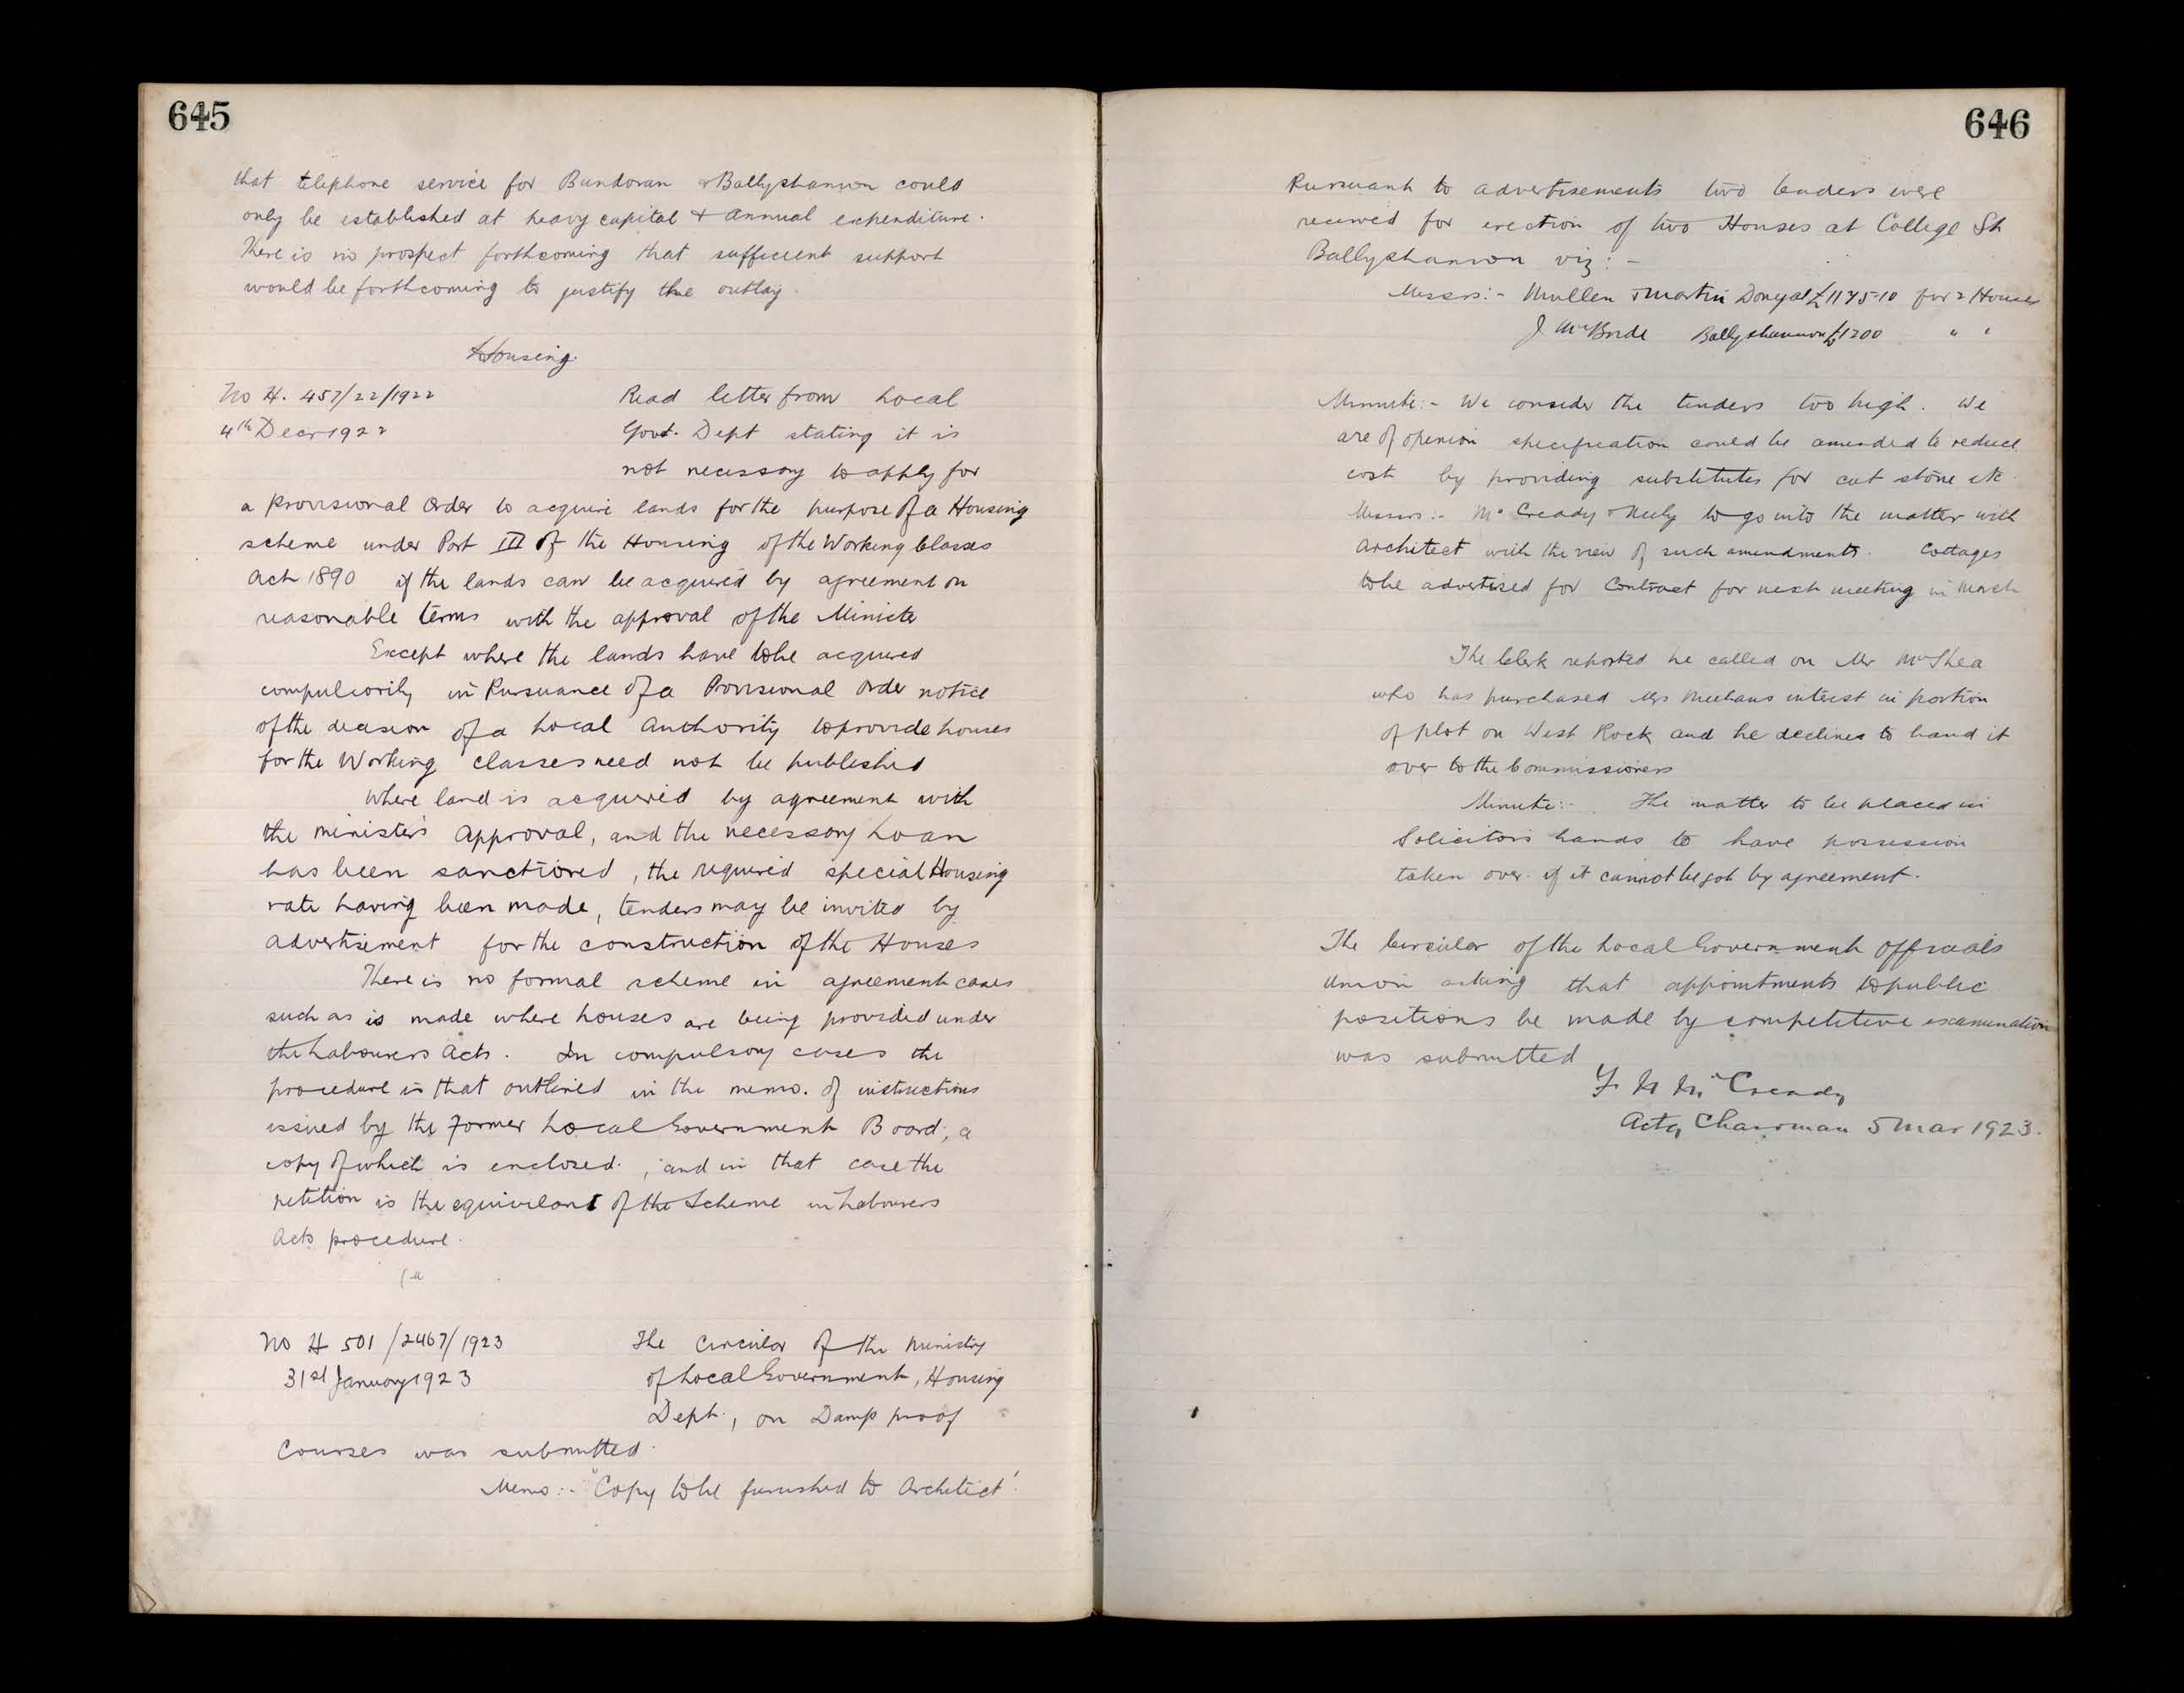 645
that telephone service for Bundoran & Ballyshannon could
only be established at heavy capital & annual expenditure.
There is no prospect forthcoming that sufficient support
would be forthcoming to justify the outlay.
Housing.
No H. 457/22/1922 Read letter from Local
4th Decr 1922 Govt. Dept stating it is
not necessary to apply for
a Provisional Order to acquire lands for the purpose of a Housing
scheme under Part III of the Housing of the Working Classes
Act 1890 if the lands can be acquired by agreement on
reasonable terms with the approval of the Minister
Except where the lands have to be acquired
compulsorily in Pursuance of a Provisional Order notice
of the decision of a Local Authority to provide houses
for the Working Classes need not be published
Where land is acquired by agreement with
the minister's approval, and the necessary Loan
has been sanctioned, the required special Housing
rate having been made, tenders may be invited by
advertisement for the construction of the Houses
There is no formal scheme in agreement cases
such as is made where houses are being provided under
the Labourers Acts. In compulsory cases the
procedure is that outlined in the memo. of instructions
issued by the former Local Government Board, a
copy of which is enclosed, and in that case the
petition is the equivelant of the Scheme in Labourers
Acts procedure.
No H 501/2467/1923 The Circular of the Ministry
31st January 1923 of Local Government, Housing
Dept., on Damp proof
Courses was submitted.
Memo:- "Copy to be furnished to Architect'
646
Pursuant to advertisements two tenders were
received for erection of two Houses at College St
Ballyshannon viz:-
Messrs:- Mullen & Martin Donegal £1175-10 for 2 Houses
J McBride Ballyshannon £1200 " "
Minute:- We consider the tenders too high. We
are of opinion specification could be amended to reduce
cost by providing substitutes for cut stone etc.
Messrs:- McCready & Neely to go into the matter with
Architect with the view of such amendments. Cottages
to be advertised for Contract for next meeting in March
The Clerk reported he called on Mr McShea
who has purchased Mrs Meehans interest in portion
of plot on West Rock and he declines to hand it
over to the Commissioners
Minute:- The matter to be placed in
Solicitors hands to have possession
taken over if it cannot be got by agreement.
The Circular of the Local Government Officials
Union asking that appointments to public
positions be made by competitive examination
was submitted
McCready
Actg Chairman 5 Mar 1923.